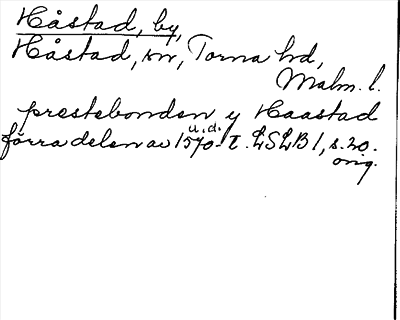 Håstad, by,
Håstad, sn, Torna hd,
Malm. l.
prestebonden y Haastad
u.d.
förra delen av 1570-t. LSLB 1, s. 20.
orig.